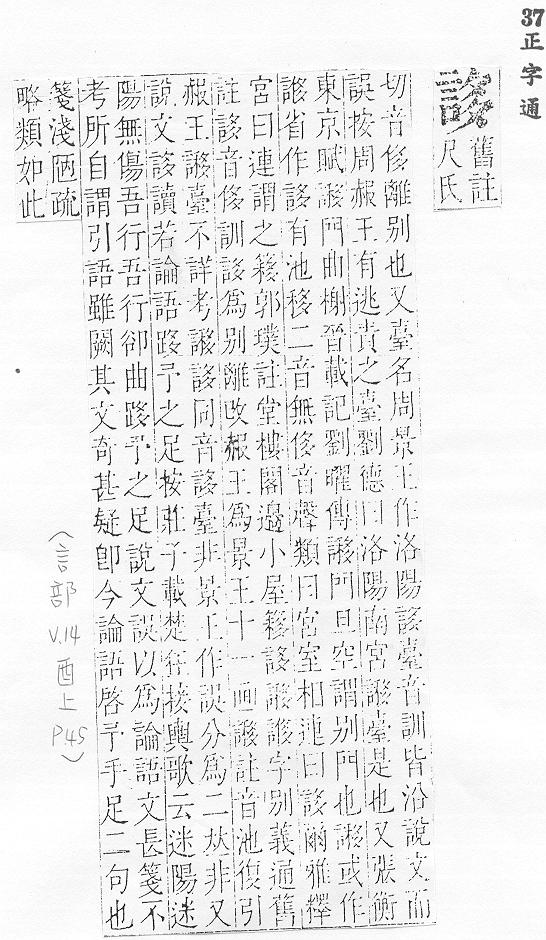 37正字通
誃
舊註
尺氏
切音侈離别也又臺名周景王作洛陽誃臺音訓皆沿說文而
誤按周赧王有逃責之臺劉德曰洛陽南宮謻臺是也又張衡
東京賦謻門曲榭晉載記劉曜傳謻門旦空謂别門也謻或作
謻省作誃有池移二音無侈音聲類曰宮室相連曰誃爾雅釋
宮曰連謂之簃郭璞註堂樓閣邊小屋簃誃謻字别義通舊
註誃音侈訓誃為别離改赧王為景王十一畫謻註音池復引
赧王謻臺不詳考謻誃同音誃臺非景王作誤分為二𠀤非又
說文誃讀若論語跢予之足按莊子載楚狂接輿歌云迷陽迷
陽無傷吾行吾行郤曲跢予之足說文誤以為論語文長箋不
考所自謂引語雖闕其文奇甚疑卽今論語啓予手足二句也
箋淺陋疏
略類如此
(言部 V.14 酉上 P45)